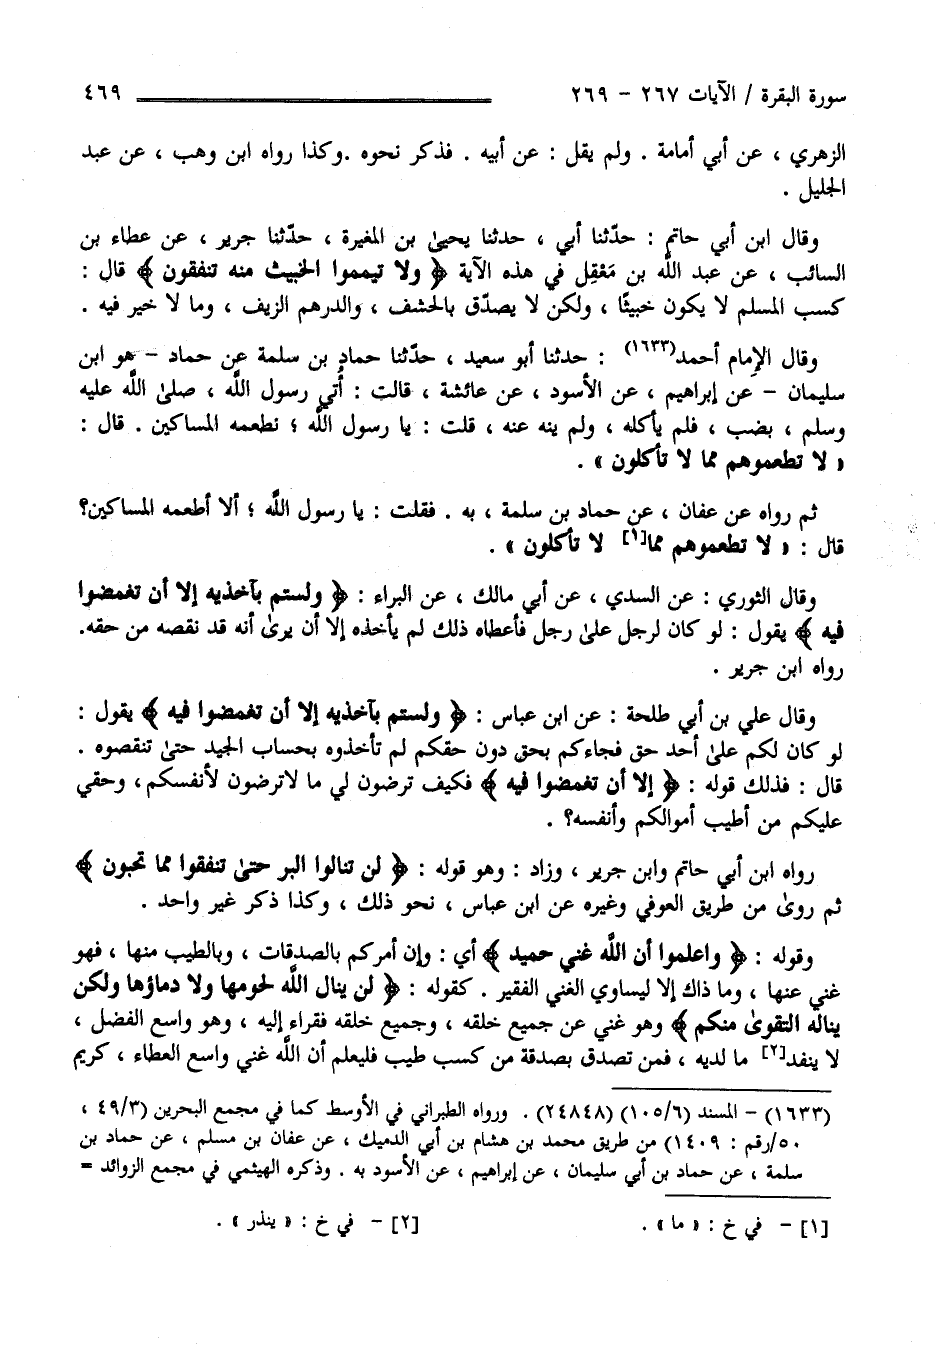 سورة البقرة / الآيات ٢٦٧ - ٢٦٩ ٤٦٩
الزهري ، عن أبي أمامة . ولم يقل : عن أبيه . فذكر نحوه .وكذا رواه ابن وهب ، عن عبد
الجليل .
وقال ابن أبي حاتم : حدّثنا أبي ، حدثنا يحيىٰ بن المغيرة ، حدّثنا جرير ، عن عطاء بن
السائب ، عن عبد اللَّه بن مَعْقِل في هذه الآية ﴿ ولا تيمموا الخبيث منه تنفقون ﴾ قال :
كسب المسلم لا يكون خبيثًا ، ولكن لا يصدّق بالحشف ، والدرهم الزيف ، وما لا خير فيه .
وقال الإمام أحمد(١٦٣٣) : حدثنا أبو سعيد ، حدّثنا حماد بن سلمة عن حماد - هو ابن
سليمان - عن إبراهيم ، عن الأسود ، عن عائشة ، قالت : أُتي رسول اللَّه ، صلىٰ اللَّه عليه
وسلم ، بضب ، فلم يأكله ، ولم ينه عنه ، قلت : يا رسول اللَّه ؛ نطعمه المساكين . قال :
« لا تطعموهم مما لا تأكلون » .
ثم رواه عن عفان ، عن حماد بن سلمة ، به . فقلت : يا رسول اللَّه ؛ ألا أطعمه المساكين؟
قال : « لا تطعموهم مما[١] لا تأكلون » .
وقال الثوري : عن السدي ، عن أبي مالك ، عن البراء : ﴿ ولستم بآخذيه إلا أن تغمضوا
فيه ﴾ يقول : لو كان لرجل علىٰ رجل فأعطاه ذلك لم يأخذه إلا أن يرىٰ أنه قد نقصه من حقه.
رواه ابن جرير .
وقال علي بن أبي طلحة : عن ابن عباس : ﴿ ولستم بآخذيه إلا أن تغمضوا فيه ﴾ يقول :
لو كان لكم علىٰ أحد حق فجاءكم بحق دون حقكم لم تأخذوه بحساب الجيد حتىٰ تنقصوه .
قال : فذلك قوله : ﴿ إلا أن تغمضوا فيه ﴾ فكيف ترضون لي ما لاترضون لأنفسكم، وحقي
عليكم من أطيب أموالكم وأنفسه؟ .
رواه ابن أبي حاتم وابن جرير ، وزاد : وهو قوله : ﴿ لن تنالوا البر حتىٰ تنفقوا مما تحبون ﴾
ثم روىٰ من طريق العوفي وغيره عن ابن عباس ، نحو ذلك ، وكذا ذكر غير واحد .
وقوله : ﴿ واعلموا أن اللَّه غني حميد ﴾ أي : وإن أمركم بالصدقات ، وبالطيب منها ، فهو
غني عنها ، وما ذاك إلا ليساوي الغني الفقير . كقوله : ﴿ لن ينال اللَّه لحومها ولا دماؤها ولكن
يناله التقوىٰ منكم ﴾ وهو غني عن جميع خلقه ، وجميع خلقه فقراء إليه ، وهو واسع الفضل ،
لا ينفد[٢] ما لديه ، فمن تصدق بصدقة من كسب طيب فليعلم أن اللَّه غني واسع العطاء ، كريم
(١٦٣٣) - المسند (١٠٥/٦) (٢٤٨٤٨) . ورواه الطبراني في الأوسط كما في مجمع البحرين (٤٩/٣ ،
٥٠/رقم : ١٤٠٩) من طريق محمد بن هشام بن أبي الدميك ، عن عفان بن مسلم ، عن حماد بن
سلمة ، عن حماد بن أبي سليمان ، عن إبراهيم ، عن الأسود به . وذكره الهيثمي في مجمع الزوائد =
[١] - في خ : « ما » . [٢] - في خ : « ينذر » .